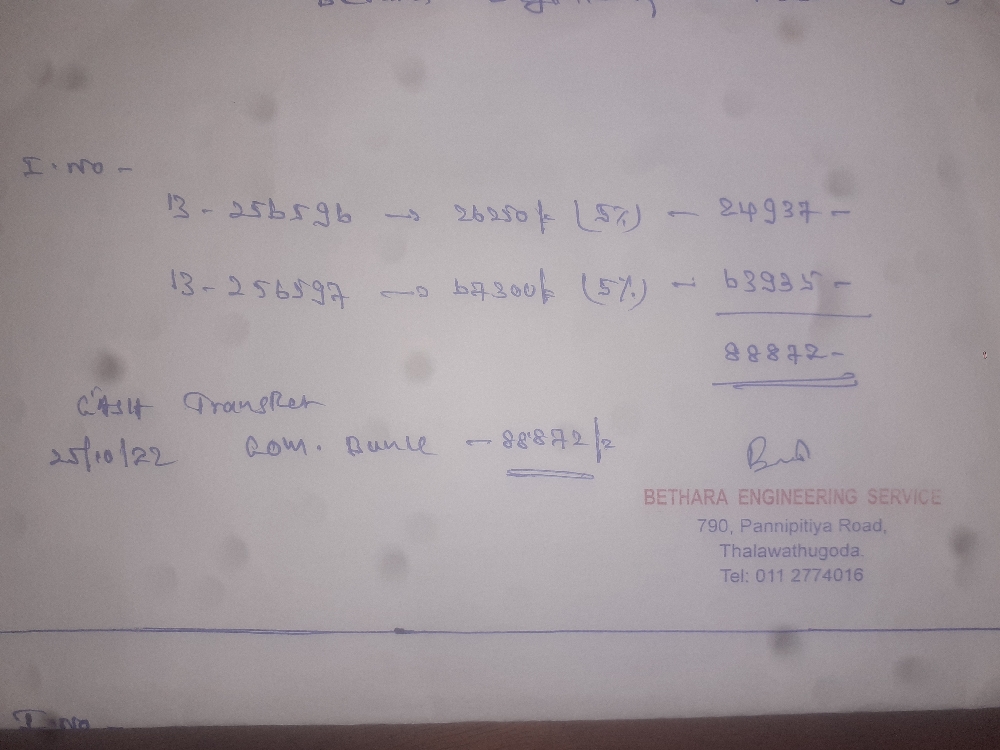 I. No -
13 - 256596 → 26250/= (5%) - 24937 -
13 - 256597 → 67300/= (5%) - 63935 -
88872 -
CASH Transfer
25/10/22 Com. Bank - 88872/=
BETHARA ENGINEERING SERVICE
790, Pannipitiya Road,
Thalawathugoda.
Tel: 011 2774016
I. No -